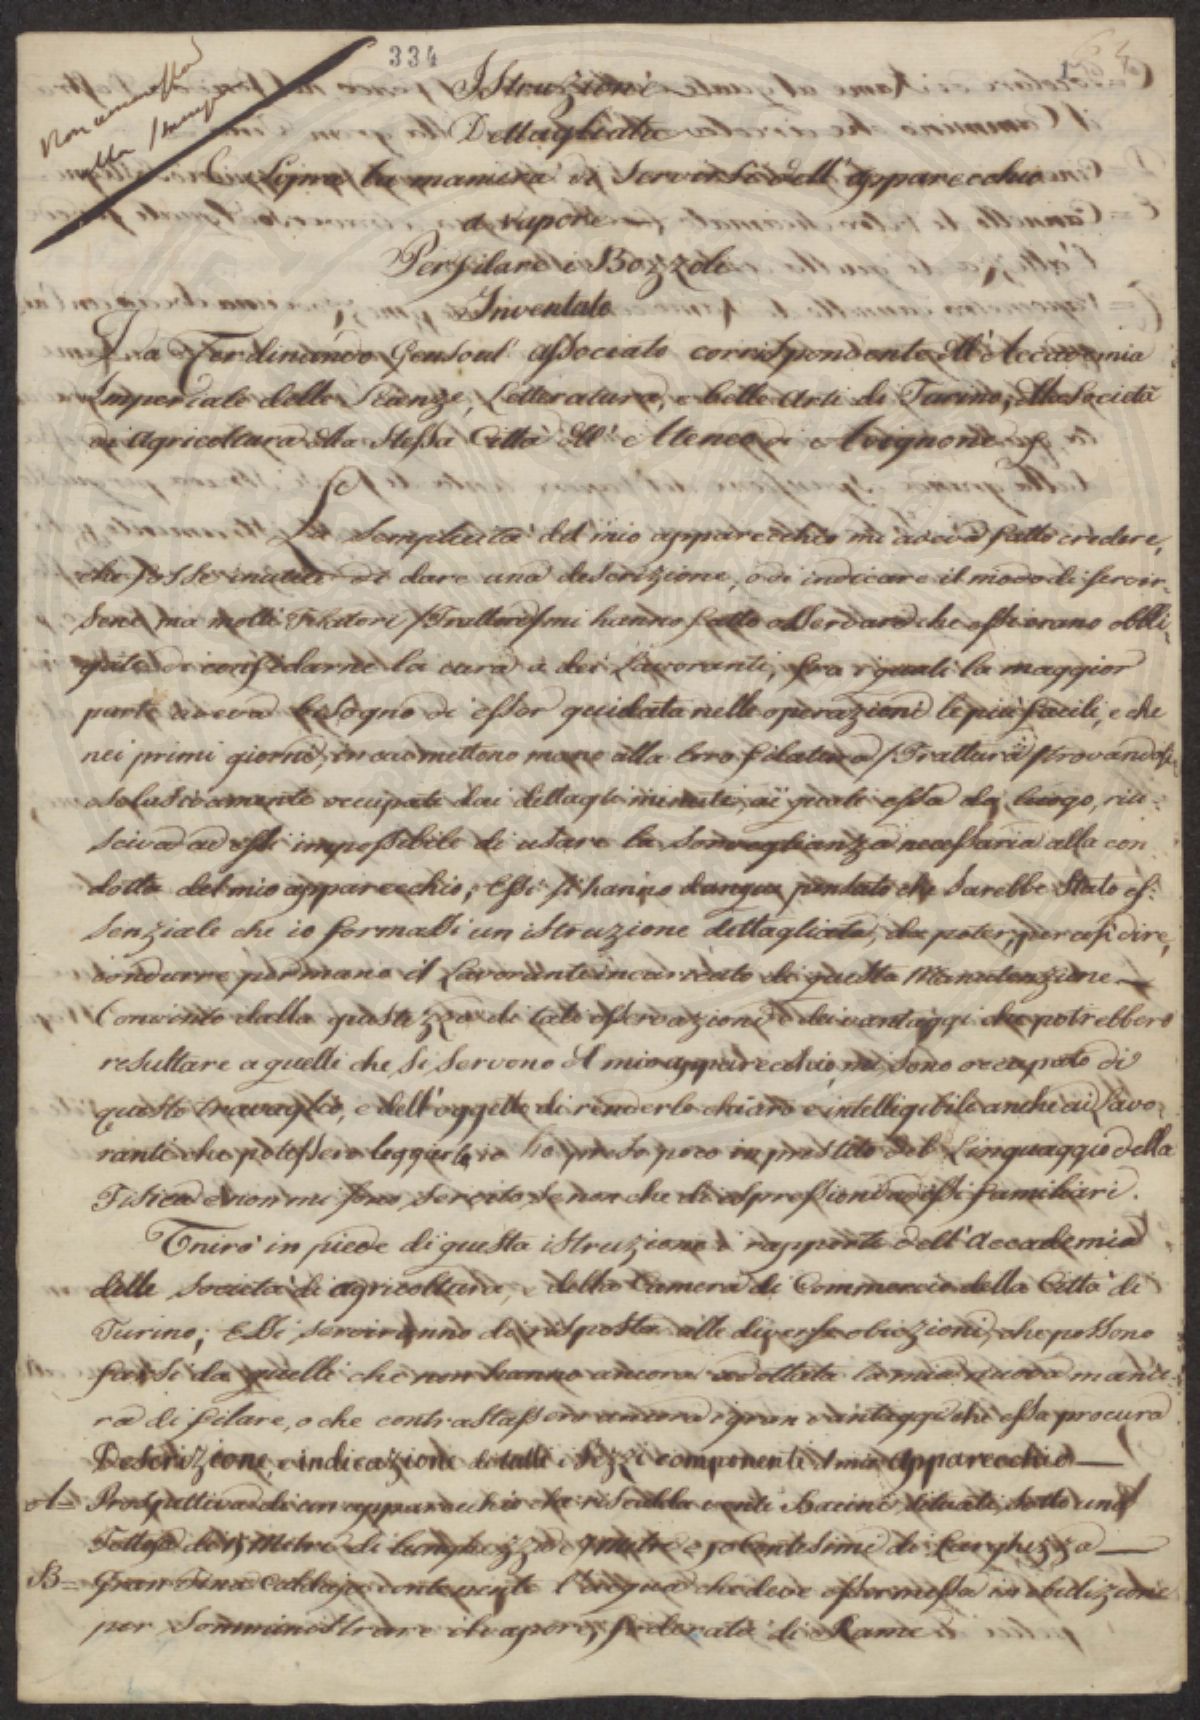 334
Non ammessa
alla stampa
Istruzioni
Dettagliate
Sopra la maniera di Servirsi dell'apparecchio
a vapore
Per filare i Bozzoli
Inventato
Da Ferdinando Gensoul associato corrispondente dell'Accademia
Imperiale delle Scienze, Letteratura, e belle Arti di Torino, della Società
di Agricoltura della Stessa Città dell'Ateneo di Avignone &c
La Semplicità del mio apparecchio mi aveva fatto credere,
che fosse inutile di dare una descrizione, o di indicare il modo di servir-
sene, ma molti Filatori /Trattori/ mi hanno fatto osservare che essi erano obbli-
gati di confidarne la cura a dei Lavoranti, fra i quali la maggior
parte aveva bisogno di esser guidata nelle operazioni le più facili, e che
nei primi giorni, in cui mettono mano alla loro filatura /Trattura/ trovandosi
esclusivamente occupati dai dettagli minuti, ai quali essa dà luogo, riu-
sciva ad essi impossibile di usare la sorveglianza necessaria alla con
dotta del mio apparecchio; Essi hanno dunque pensato che sarebbe stato es-
senziale che io formassi un istruzione dettagliata, da poter, per così dire,
condurre per mano il Lavorante incaricato di questa Manutenzione —
Convinto dalla giustezza di tale osservazione e dei vantaggi che potrebbero
resultare a quelli che si servono del mio apparecchio, mi sono occupato di
questo travaglio, e dell'oggetto di renderlo chiaro e intelligibile anche ai Lavo-
ranti che potessero leggerlo, io ho preso poco in prestito dal Linguaggio della
Fisica e non mi sono servito se non che di espressioni ad essi familiari.
Unirò in piede di questa istruzione i rapporti dell'Accademia
delle Società di agricoltura, e della Camera di Commercio della Città di
Turino; Essi serviranno di risposta alle diverse obiezioni, che possono
farsi da quelli che non hanno ancora adottata la mia nuova manie-
ra di filare, o che contrastassero ancora i gran vantaggi che essa procura
Descrizione, e indicazione di tutti i Pezzi componenti il mio apparecchio —
A= Prospettiva di un apparecchio che riscalda venti Bacini situati sotto una
Tettoja di Metri di lunghezza e 7 metri e 50 Centesimi di Larghezza —
B= Gran Tina Caldaja contenente l'acqua che deve esser messa in ebulizione
per somministrare il vapore, foderata di Rame